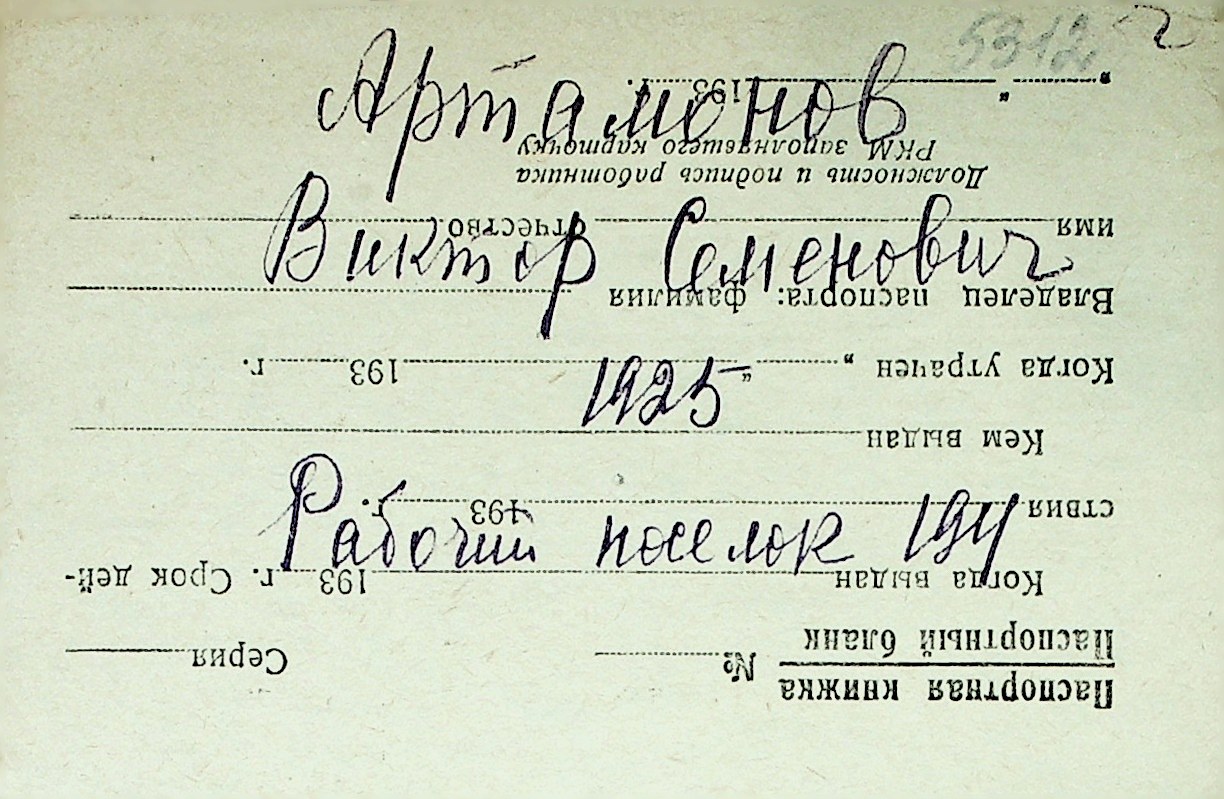 5312 2
Артамонов
Виктор Семенович
1925
Рабочий поселок 194
Паспортная книжка
Паспортный бланк
№ Серия
Когда выдан 193 г. Срок дей-
ствия 193 г.
Кем выдан
Когда утрачен „ “ 193 г.
Владелец паспорта: фамилия
имя отчество
Должность и подпись работника
РКМ заполнявшего карточку
„ “ 193 г.